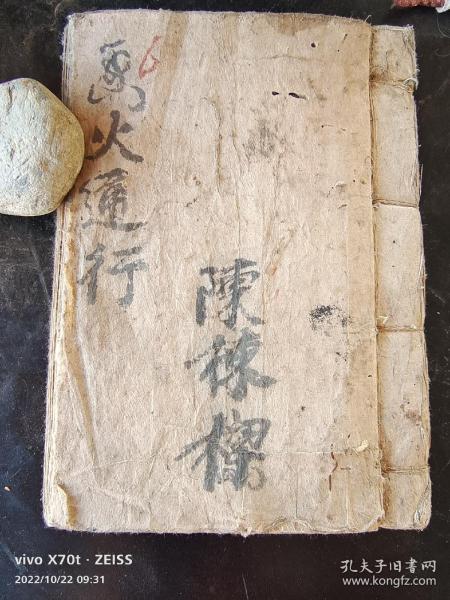 火運行
陳棟樑
vivo X70t · ZEISS
2022/10/22 09:31
孔夫子旧书网
www.kongfz.com